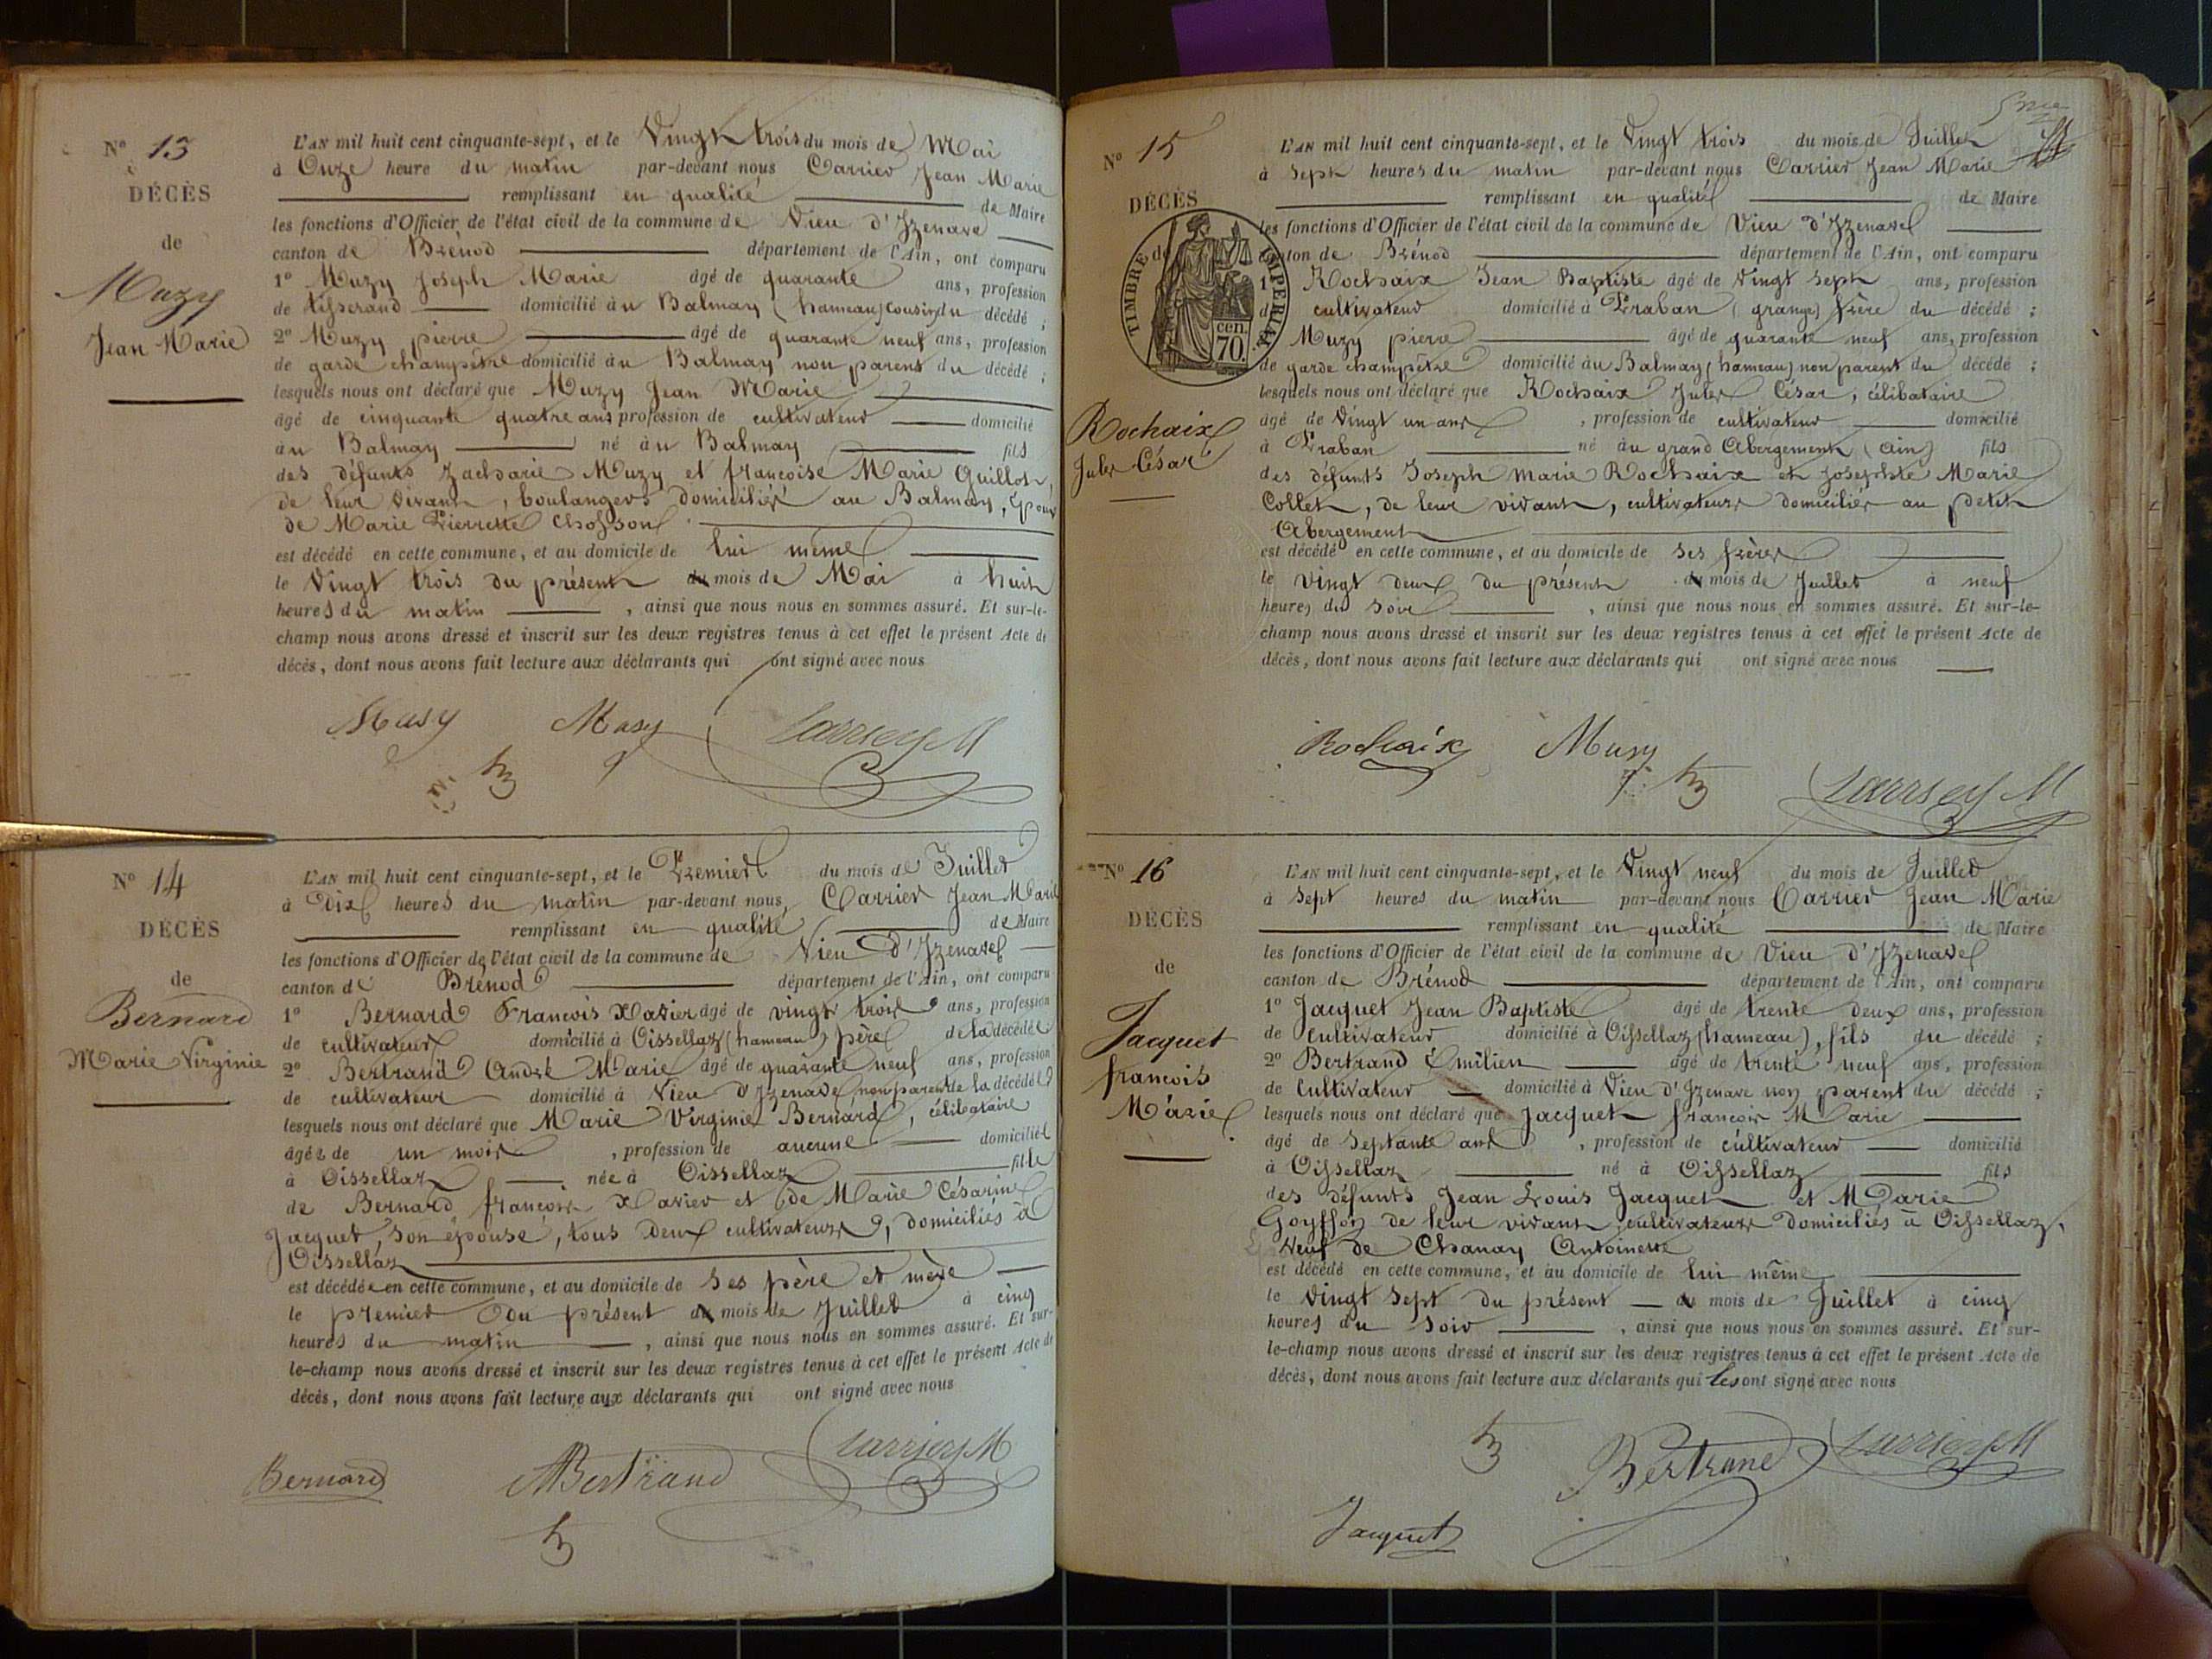 N° 13
DÉCÈS
de
Muzy
Jean Marie
L'AN mil huit cent cinquante-sept, et le Vingt trois du mois de Mai
à Onze heure du matin par-devant nous Carrier Jean Marie
remplissant en qualité de Maire
les fonctions d'Officier de l'état civil de la commune de Vieu d'Izenave
canton de Brénod département de l'Ain, ont comparu
1° Muzy Joseph Marie âgé de quarante ans, profession
de tisserand domicilié au Balmay (hameau) cousin du décédé ;
2° Muzy pierre âgé de quarante neuf ans, profession
de garde champêtre domicilié au Balmay non parent du décédé ;
lesquels nous ont déclaré que Muzy Jean Marie
âgé de cinquante quatre ans profession de cultivateur domicilié
au Balmay né au Balmay fils
des défunts Zacharie Muzy et françoise Marie Guillot,
de leur vivant, boulangers domiciliés au Balmay, Époux
de Marie Pierrette Chosson
est décédé en cette commune, et au domicile de lui même
le Vingt trois du présent du mois de Mai à huit
heures du matin , ainsi que nous nous en sommes assuré. Et sur-le-
champ nous avons dressé et inscrit sur les deux registres tenus à cet effet le présent Acte de
décès, dont nous avons fait lecture aux déclarants qui ont signé avec nous
Musy Musy Carrier JM
N° 14
DÉCÈS
de
Bernard
Marie Virginie
L'AN mil huit cent cinquante-sept, et le Premier du mois de Juillet
à Dix heures du matin par-devant nous, Carrier Jean Marie
remplissant en qualité de Maire
les fonctions d'Officier de l'état civil de la commune de Vieu d'Izenave
canton de Brénod département de l'Ain, ont comparu
1° Bernard François Xavier âgé de vingt trois ans, profession
de cultivateur domicilié à Oissellaz (hameau) père de la décédée
2° Bertrand André Marie âgé de quarante neuf ans, profession
de cultivateur domicilié à Vieu d'Izenave, non parent de la décédée
lesquels nous ont déclaré que Marie Virginie Bernard, célibataire
âgée de un mois , profession de aucune domiciliée
à Oissellaz née à Oissellaz fille
de Bernard françois Xavier et de Marie Césarine
Jacquet, son épouse, tous deux cultivateurs, domiciliés à
Oissellaz
est décédée en cette commune, et au domicile de ses père et mère
le premier du présent du mois de Juillet à cinq
heures du matin , ainsi que nous nous en sommes assuré. Et sur-
le-champ nous avons dressé et inscrit sur les deux registres tenus à cet effet le présent Acte de
décès, dont nous avons fait lecture aux déclarants qui ont signé avec nous
Bernard ABertrand Carrier JM
N° 15
DÉCÈS
de
TIMBRE IMPÉRIAL
cen.
70.
Rochaix
Jules César
L'AN mil huit cent cinquante-sept, et le Vingt trois du mois de Juillet
à sept heures du matin par-devant nous Carrier Jean Marie
remplissant en qualité de Maire
les fonctions d'Officier de l'état civil de la commune de Vieu d'Izenave
canton de Brénod département de l'Ain, ont comparu
1° Rochaix Jean Baptiste âgé de Vingt sept ans, profession
de cultivateur domicilié à Praban (grange) frère du décédé ;
Muzy pierre âgé de quarante neuf ans, profession
de garde champêtre domicilié au Balmay (hameau) non parent du décédé ;
lesquels nous ont déclaré que Rochaix Jules César, célibataire
âgé de Vingt un ans , profession de cultivateur domicilié
à Praban né au grand Abergement (Ain) fils
des défunts Joseph Marie Rochaix et Josephte Marie
Collet, de leur vivant, cultivateurs domiciliés au petit
Abergement
est décédé en cette commune, et au domicile de ses frères
le vingt deux du présent du mois de Juillet à neuf
heures du soir , ainsi que nous nous en sommes assuré. Et sur-le-
champ nous avons dressé et inscrit sur les deux registres tenus à cet effet le présent Acte de
décès, dont nous avons fait lecture aux déclarants qui ont signé avec nous
Rochaix Musy Carrier JM
N° 16
DÉCÈS
de
Jacquet
françois
Marie
L'AN mil huit cent cinquante-sept, et le Vingt neuf du mois de Juillet
à sept heures du matin par-devant nous Carrier Jean Marie
remplissant en qualité de Maire
les fonctions d'Officier de l'état civil de la commune de Vieu d'Izenave
canton de Brénod département de l'Ain, ont comparu
1° Jacquet Jean Baptiste âgé de trente deux ans, profession
de Cultivateur domicilié à Oissellaz (hameau), fils du décédé ;
2° Bertrand Émilien âgé de trente neuf ans, profession
de Cultivateur domicilié à Vieu d'Izenave non parent du décédé ;
lesquels nous ont déclaré que Jacquet françois Marie
âgé de septante ans , profession de cultivateur domicilié
à Oissellaz né à Oissellaz fils
des défunts Jean Louis Jacquet et Marie
Goyffon de leur vivant cultivateurs domiciliés à Oissellaz,
Veuf de Chanay Antoinette
est décédé en cette commune, et au domicile de lui même
le Vingt sept du présent du mois de Juillet à cinq
heures du soir , ainsi que nous nous en sommes assuré. Et sur-
le-champ nous avons dressé et inscrit sur les deux registres tenus à cet effet le présent Acte de
décès, dont nous avons fait lecture aux déclarants qui les ont signé avec nous
Bertrand Carrier JM
Jacquet